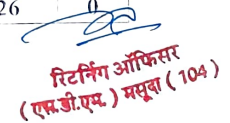 26 0
रिटर्निंग ऑफिसर
(एस.डी.एम.) मसूदा (104)